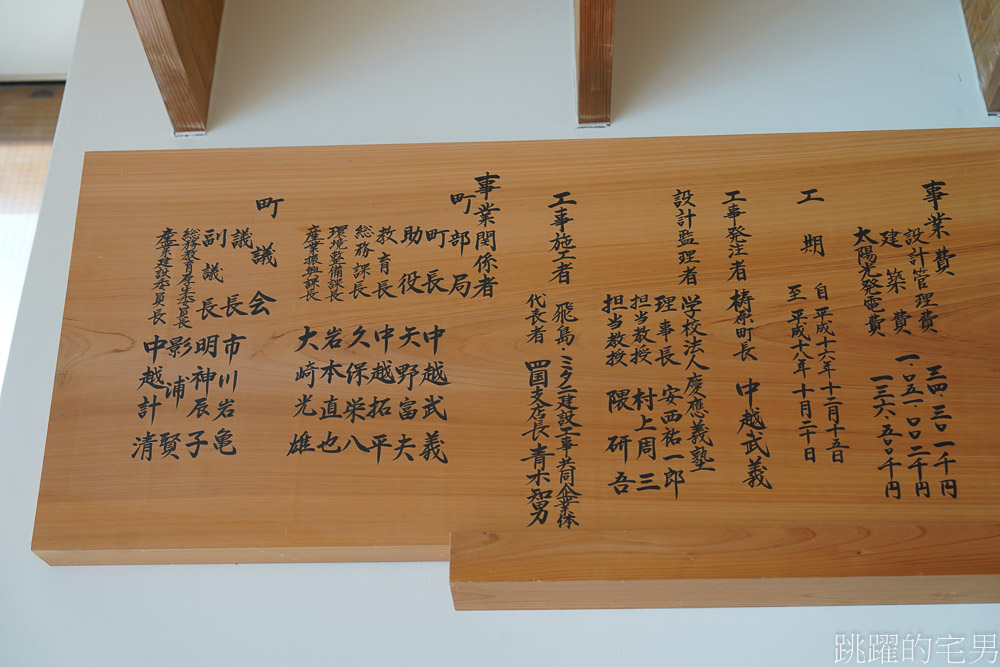 事業費
設計管理費 三四、三〇一千円
建築費 一、〇五一、〇〇二千円
太陽光発電費 一三六、五〇〇千円
工期
自 平成十六年十二月十五日
至 平成十八年十月二十日
工事発注者 梼原町長 中越武義
設計監理者
学校法人慶應義塾
理事長 安西祐一郎
担当教授 村上周三
担当教授 隈研吾
工事施工者
飛島・ミタニ建設工事共同企業体
代表者 四国支店長 青木智男
事業関係者
町部局
町長 中越武義
助役 矢野富夫
教育長 中越拓平
総務課長 久保栄八
環境整備課長 岩本直也
産業振興課長 大崎光雄
町議会
議長 市川岩亀
副議長 明神辰子
総務教育厚生委員長 影浦賢
産業建設委員長 中越計清
跳躍的宅男